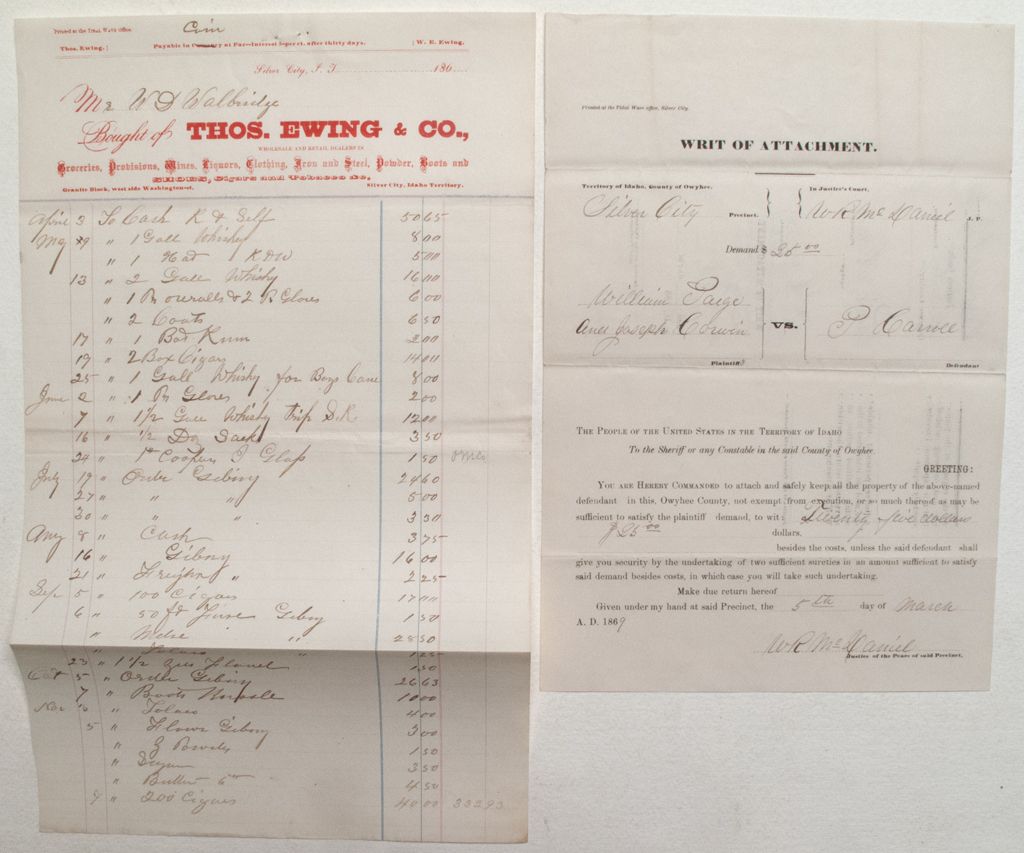 Printed at the Tidal Wave Office.
Coin
Thos. Ewing.] Payable in Currency at Par—Interest 3 per ct. after thirty days. [W. E. Ewing.
Silver City, I. T. 186
Mr W D Walbridge
Bought of THOS. EWING & CO.,
WHOLESALE AND RETAIL DEALERS IN
Groceries, Provisions, Wines, Liquors, Clothing, Iron and Steel, Powder, Boots and
SHOES, Cigars and Tobacco &c.
Granite Block, west side Washington-st. Silver City, Idaho Territory.
April 3 To Cash K & Self 50 65
May 9 " 1 Gall Whisky 8 00
" 1 Hat K & W 5 00
13 " 2 Gall Whisky 16 00
" 1 Pr overalls & 2 Pr Gloves 6 00
" 2 Coats 6 50
17 " 1 Bot Rum 2 00
19 " 2 Box Cigars 14 00
25 " 1 Gall Whisky for Boys Cane 8 00
June 2 " 1 Pr Gloves 2 00
7 " 1 1/2 Gall Whisky Trip S.R. 12 00
16 " 1/2 Doz Sack 3 50
24 " 1 Coopers Glass 1 50
July 19 " Order Gibony 24 60
27 " " " 5 00
30 " " " 3 50
Aug 8 " Cash 3 75
16 " Gibony 16 00
21 " Freight " 2 25
Sep 5 " 100 Cigars 17 00
6 " 50 ft Fuse Gibony 1 50
" " 28 50
" " 1 25
23 " 1 1/2 yds Flanel 1 50
Oct 5 " Order Gibony 26 63
7 " Boots 10 00
Nov " 4 00
5 " Flour Gibony 3 00
" Powder 1 50
" Sugar 3 50
" Butter 4 50
9 " 200 Cigars 40 00 332 93
Printed at the Tidal Wave office, Silver City.
WRIT OF ATTACHMENT.
Territory of Idaho, County of Owyhee. In Justice's Court,
Silver City Precinct. W R McDaniel J. P.
Demand $ 25 00
William Paige
and Joseph Corwin VS. P Carroll
Plaintiffs Defendant
THE PEOPLE OF THE UNITED STATES IN THE TERRITORY OF IDAHO
To the Sheriff or any Constable in the said County of Owyhee.
GREETING:
YOU ARE HEREBY COMMANDED to attach and safely keep all the property of the above-named
defendant in this, Owyhee County, not exempt from execution, or so much thereof as may be
sufficient to satisfy the plaintiff demand, to wit: Twenty five dollars
$25 00 dollars,
besides the costs, unless the said defendant shall
give you security by the undertaking of two sufficient sureties in an amount sufficient to satisfy
said demand besides costs, in which case you will take such undertaking.
Make due return hereof
Given under my hand at said Precinct, the 5th day of March
A. D. 1869
W R McDaniel
Justice of the Peace of said Precinct.